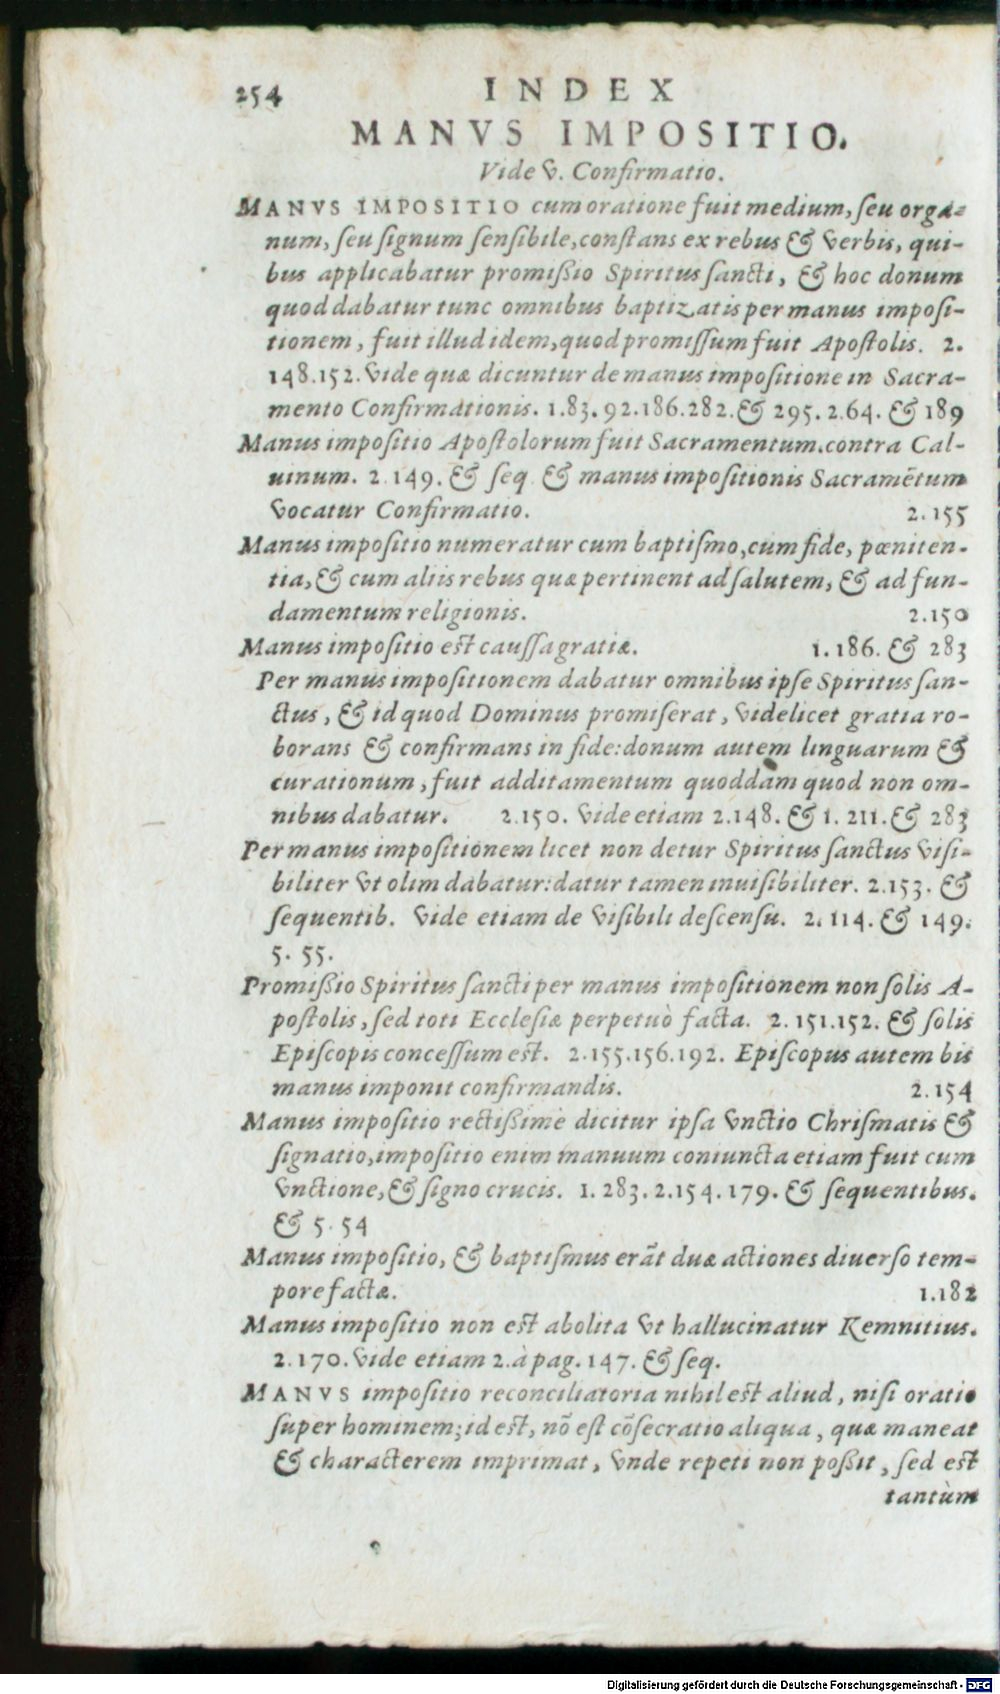 254 INDEX
MANVS IMPOSITIO.
Vide v. Confirmatio.
MANVS IMPOSITIO cum oratione fuit medium, ſeu orga-
num, ſeu ſignum ſenſibile, conſtans ex rebus & verbis, qui-
bus applicabatur promißio Spiritus ſancti, & hoc donum
quod dabatur tunc omnibus baptizatis per manus impoſi-
tionem, fuit illud idem, quod promiſſum fuit Apoſtolis. 2.
148.152. Vide quæ dicuntur de manus impoſitione in Sacra-
mento Confirmationis. 1.83. 92.186.282. & 295. 2.64. & 189
Manus impoſitio Apoſtolorum fuit Sacramentum. contra Cal-
uinum. 2.149. & ſeq. & manus impoſitionis Sacramẽtum
vocatur Confirmatio. 2.155
Manus impoſitio numeratur cum baptiſmo, cum fide, pœniten-
tia, & cum aliis rebus quæ pertinent ad ſalutem, & ad fun-
damentum religionis. 2.150
Manus impoſitio eſt cauſſa gratiæ. 1.186. & 283
Per manus impoſitionem dabatur omnibus ipſe Spiritus ſan-
ctus, & id quod Dominus promiſerat, videlicet gratia ro-
borans & confirmans in fide: donum autem linguarum &
curationum, fuit additamentum quoddam quod non om-
nibus dabatur. 2.150. Vide etiam 2.148. & 1. 211. & 283
Per manus impoſitionem licet non detur Spiritus ſanctus viſi-
biliter vt olim dabatur: datur tamen inuiſibiliter. 2.153. &
ſequentib. Vide etiam de viſibili deſcenſu. 2. 114. & 149.
5. 55.
Promißio Spiritus ſancti per manus impoſitionem non ſolis A-
poſtolis, ſed toti Eccleſiæ perpetuò facta. 2. 151.152. & ſolis
Epiſcopis conceſſum eſt. 2.155.156.192. Epiſcopus autem bis
manus imponit confirmandis. 2.154
Manus impoſitio rectißimè dicitur ipſa vnctio Chriſmatis &
ſignatio, impoſitio enim manuum coniuncta etiam fuit cum
vnctione, & ſigno crucis. 1. 283. 2.154. 179. & ſequentibus.
& 5. 54
Manus impoſitio, & baptiſmus erãt duæ actiones diuerſo tem-
pore factæ. 1.182
Manus impoſitio non eſt abolita vt hallucinatur Kemnitius.
2.170. Vide etiam 2. à pag. 147. & ſeq.
MANVS impoſitio reconciliatoria nihil eſt aliud, niſi oratio
ſuper hominem; id eſt, nõ eſt cõſecratio aliqua, quæ maneat
& characterem imprimat, vnde repeti non poßit, ſed eſt
tantùm
Digitalisierung gefördert durch die Deutsche Forschungsgemeinschaft - DFG